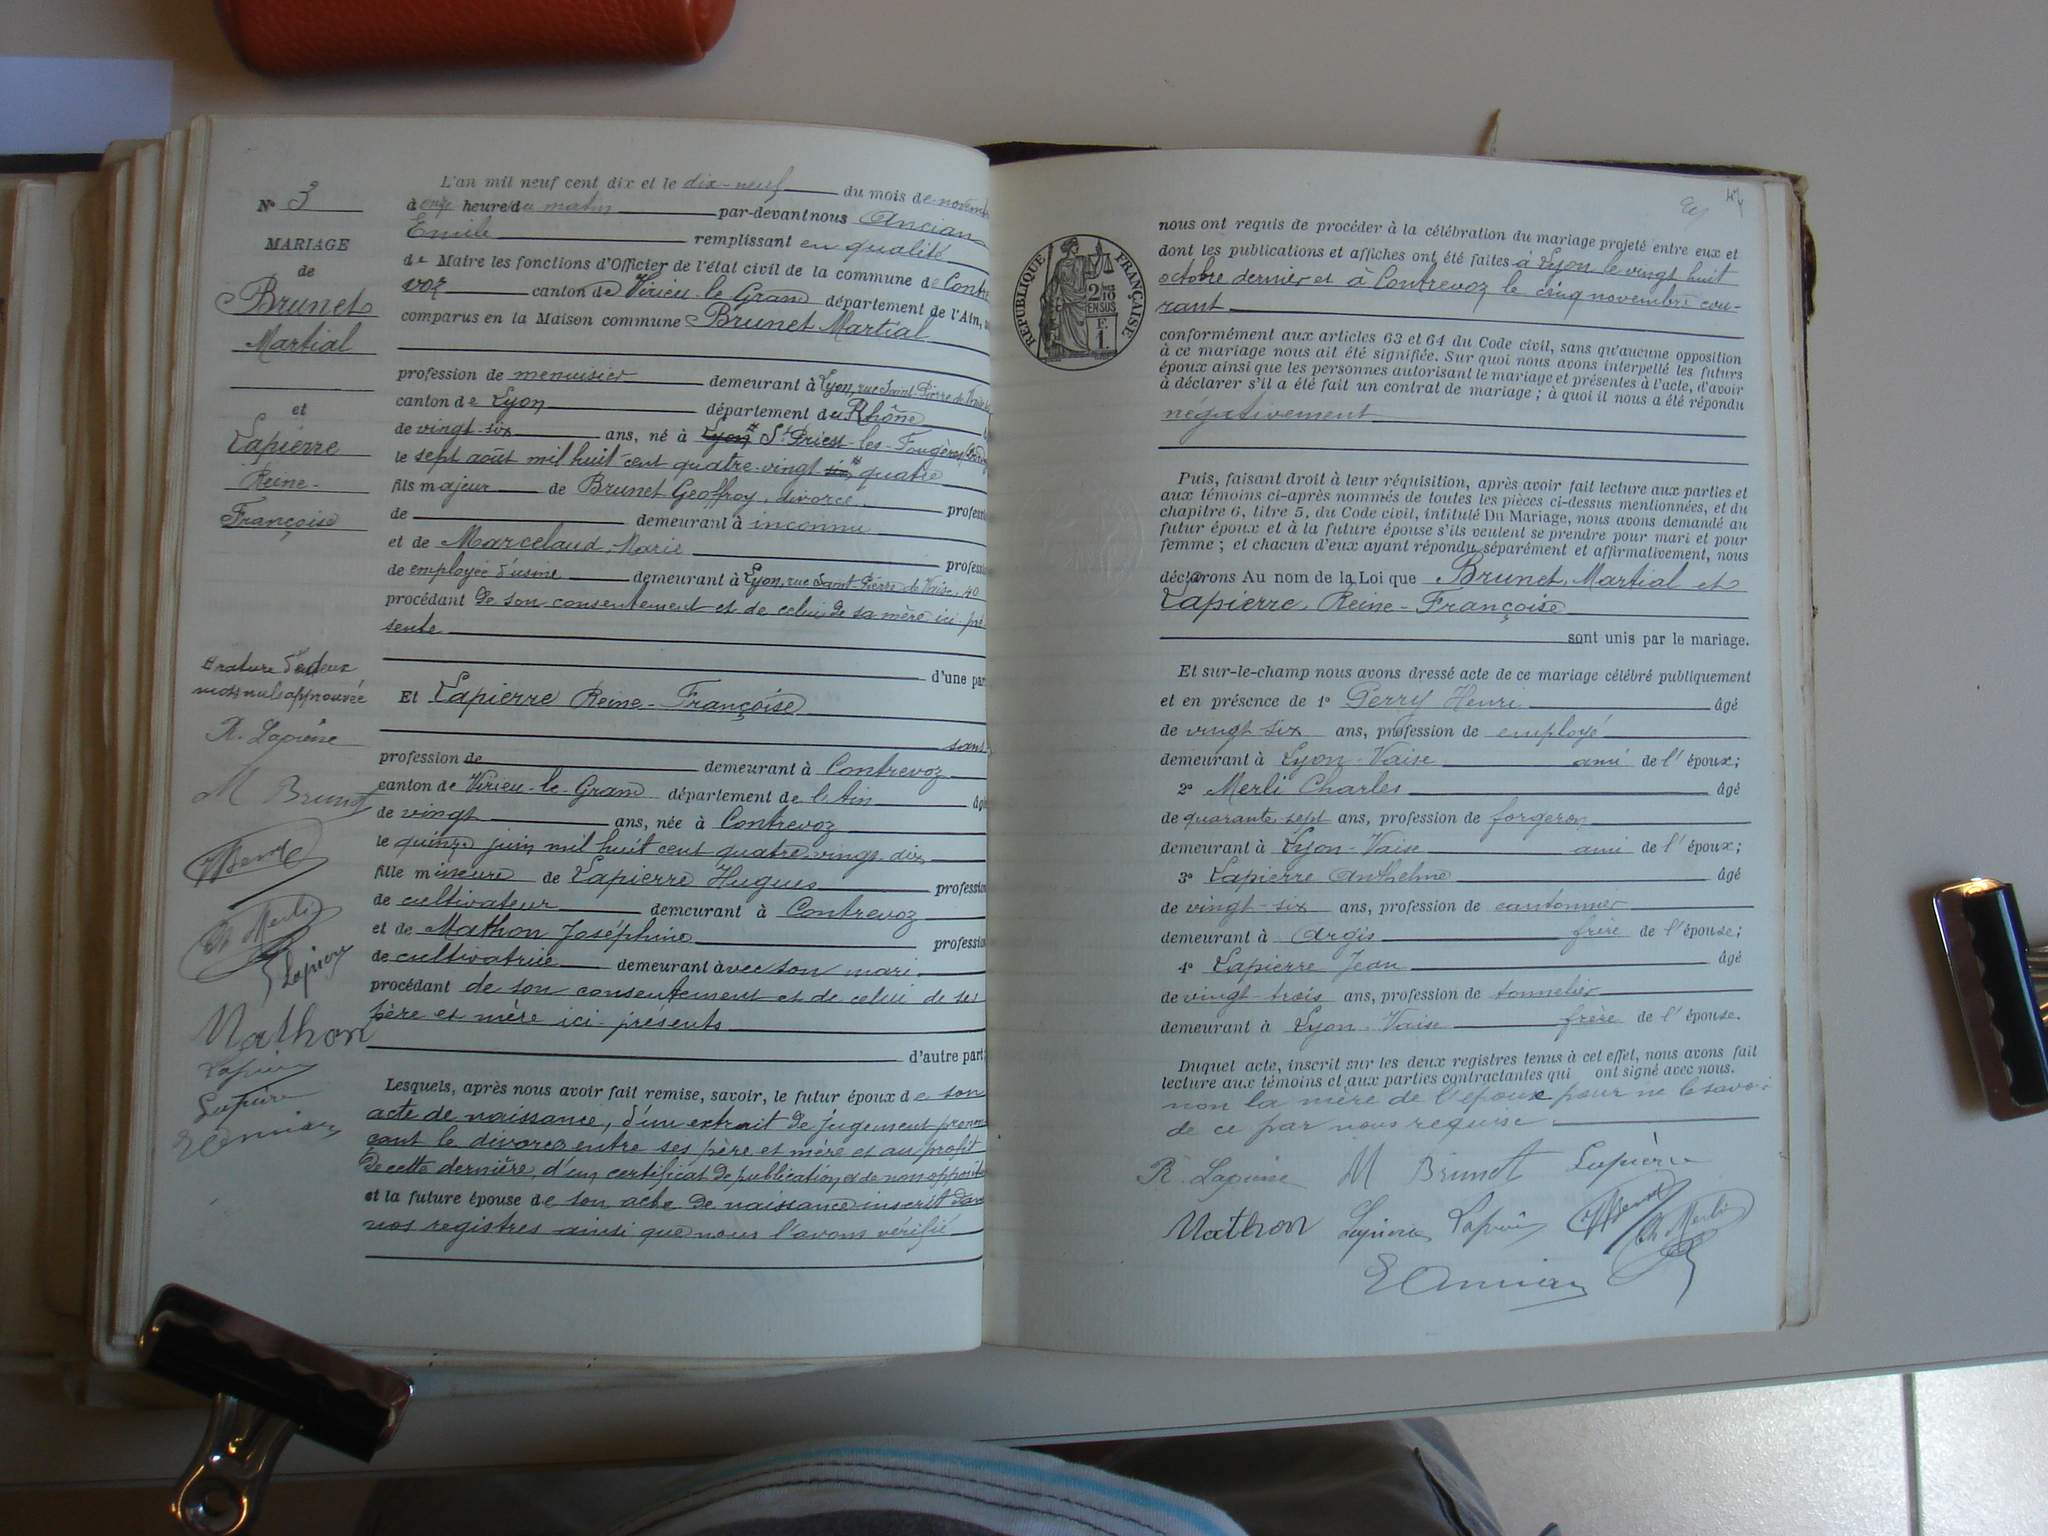 N° 3
MARIAGE
de
Brunet
Martial
et
Lapierre
Reine-
Françoise
L'an mil neuf cent dix et le dix-neuf du mois de novem
à onze heure du matin par-devant nous Ancian
Emile remplissant en qualité
de Maire les fonctions d'Officier de l'état civil de la commune de Contre
voz canton de Virieu-le-Grand département de l'Ain,
comparus en la Maison commune Brunet Martial
profession de menuisier demeurant à Lyon, rue Saint-Pierre de Vaise
canton de Lyon département du Rhône
de vingt-six ans, né à Lyon St Priest-les-Fougères
le sept août mil huit cent quatre-vingt six quatre
fils majeur de Brunet Geoffroy, divorcé, professi
de demeurant à inconnu
et de Marcelaud, Marie professi
de employée d'usine demeurant à Lyon, rue Saint-Pierre de Vaise, 40
procédant de son consentement et de celui de sa mère ici pré-
sente
d'une par
Et Lapierre Reine-Françoise
sans
profession de demeurant à Contrevoz
canton de Virieu-le-Grand département de l'Ain âg
de vingt ans, née à Contrevoz
le quinze juin mil huit cent quatre-vingt-dix
fille mineure de Lapierre Hugues professio
de cultivateur demeurant à Contrevoz
et de Mathon Joséphine professio
de cultivatrice demeurant avec son mari
procédant de son consentement et de celui de ses
père et mère ici présents
d'autre part
Lesquels, après nous avoir fait remise, savoir, le futur époux de son
acte de naissance, d'un extrait de jugement pronon
çant le divorce entre ses père et mère et au profit
de cette dernière, d'un certificat de publication et de non opposit
et la future épouse de son acte de naissance inscrit dans
nos registres ainsi que nous l'avons vérifié
Rature de deux
mots nuls approuvée
R. Lapierre
M Brunet
Ch Merli
Lapierre
Mathon
Lapierre
Lapierre
E Ancian
47
RÉPUBLIQUE FRANÇAISE
2/10
EN SUS
F.
1.
nous ont requis de procéder à la célébration du mariage projeté entre eux et
dont les publications et affiches ont été faites à Lyon le vingt huit
octobre dernier et à Contrevoz le cinq novembre cou-
rant
conformément aux articles 63 et 64 du Code civil, sans qu'aucune opposition
à ce mariage nous ait été signifiée. Sur quoi nous avons interpellé les futurs
époux ainsi que les personnes autorisant le mariage et présentes à l'acte, d'avoir
à déclarer s'il a été fait un contrat de mariage ; à quoi il nous a été répondu
négativement
Puis, faisant droit à leur réquisition, après avoir fait lecture aux parties et
aux témoins ci-après nommés de toutes les pièces ci-dessus mentionnées, et du
chapitre 6, titre 5, du Code civil, intitulé Du Mariage, nous avons demandé au
futur époux et à la future épouse s'ils veulent se prendre pour mari et pour
femme ; et chacun d'eux ayant répondu séparément et affirmativement, nous
déclarons Au nom de la Loi que Brunet, Martial et
Lapierre, Reine-Françoise
sont unis par le mariage.
Et sur-le-champ nous avons dressé acte de ce mariage célébré publiquement
et en présence de 1° Henri âgé
de vingt-six ans, profession de employé
demeurant à Lyon-Vaise ami de l'époux;
2° Merli Charles âgé
de quarante-sept ans, profession de forgeron
demeurant à Lyon-Vaise ami de l'époux;
3° Lapierre Anthelme âgé
de vingt-six ans, profession de cantonnier
demeurant à Argis frère de l'épouse;
4° Lapierre Jean âgé
de vingt-trois ans, profession de tonnelier
demeurant à Lyon-Vaise frère de l'épouse.
Duquel acte, inscrit sur les deux registres tenus à cet effet, nous avons fait
lecture aux témoins et aux parties contractantes qui ont signé avec nous.
non la mère de l'époux pour ne le savoir
de ce par nous requise.
R. Lapierre M Brunet Lapierre
Mathon Lapierre Lapierre Ch Merli
E Ancian